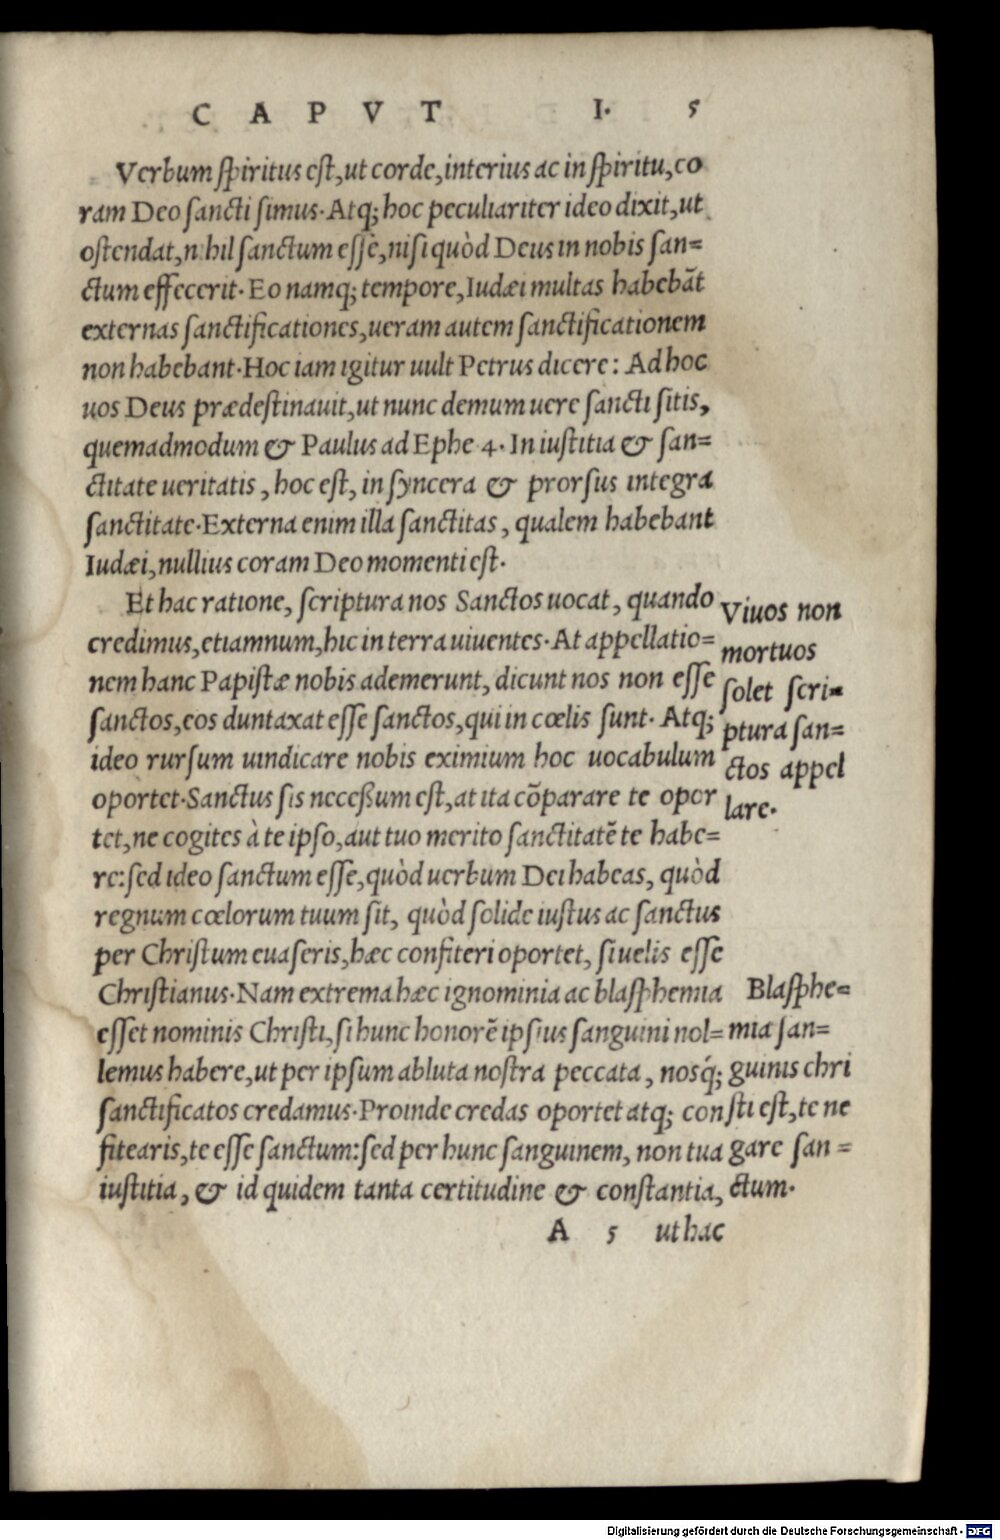 CAPVT I. 5
Verbum spiritus est, ut corde, interius ac in spiritu, co
ram Deo sancti simus. Atq; hoc peculiariter ideo dixit, ut
ostendat, nihil sanctum esse, nisi quòd Deus in nobis san=
ctum effecerit. Eo namq; tempore, Iudæi multas habebāt
externas sanctificationes, ueram autem sanctificationem
non habebant. Hoc iam igitur uult Petrus dicere: Ad hoc
uos Deus prædestinauit, ut nunc demum uere sancti sitis,
quemadmodum & Paulus ad Ephe 4. In iustitia & san=
ctitate ueritatis, hoc est, in syncera & prorsus integra
sanctitate. Externa enim illa sanctitas, qualem habebant
Iudæi, nullius coram Deo momenti est.
Et hac ratione, scriptura nos Sanctos uocat, quando
credimus, etiamnum, hic in terra uiuentes. At appellatio=
nem hanc Papistæ nobis ademerunt, dicunt nos non esse
sanctos, eos duntaxat esse sanctos, qui in cœlis sunt. Atq;
ideo rursum uindicare nobis eximium hoc uocabulum
oportet. Sanctus sis necessum est, at ita cōparare te opor
tet, ne cogites à te ipso, aut tuo merito sanctitatē te habe=
re: sed ideo sanctum esse, quòd uerbum Dei habeas, quòd
regnum cœlorum tuum sit, quòd solide iustus ac sanctus
per Christum euaseris, hæc confiteri oportet, si uelis esse
Christianus. Nam extrema hæc ignominia ac blasphemia
esset nominis Christi, si hunc honorē ipsius sanguini nol=
lemus habere, ut per ipsum abluta nostra peccata, nosq́;
sanctificatos credamus. Proinde credas oportet atq; con
fitearis, te esse sanctum: sed per hunc sanguinem, non tua
iustitia, & id quidem tanta certitudine & constantia,
A 5 ut hac
Viuos non
mortuos
solet scri=
ptura san=
ctos appel
lare.
Blasphe=
mia san=
guinis chri
sti est, te ne
gare san=
ctum.
Digitalisierung gefördert durch die Deutsche Forschungsgemeinschaft - DFG